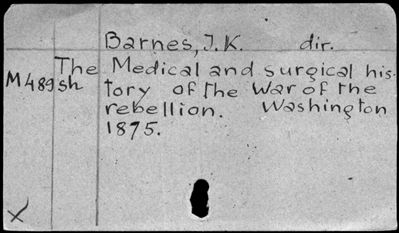 Barnes, J.K. dir.
The Medical and surgical his-
M489 sh tory of the War of the
rebellion. Washington
1875.
X